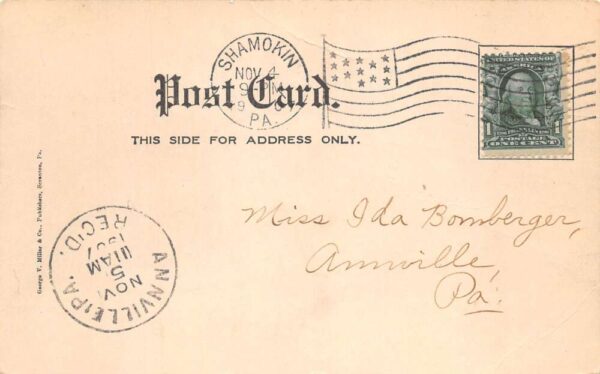 SHAMOKIN
NOV 4
9 PM
PA.
Post Card.
THIS SIDE FOR ADDRESS ONLY.
UNITED STATES OF AMERICA
1 1
POSTAGE
ONE CENT
George V. Millar & Co., Publishers, Scranton, Pa.
ANNVILLE, PA.
NOV
5
11 AM
1907
REC'D.
Miss Ida Bomberger,
Annville,
Pa.